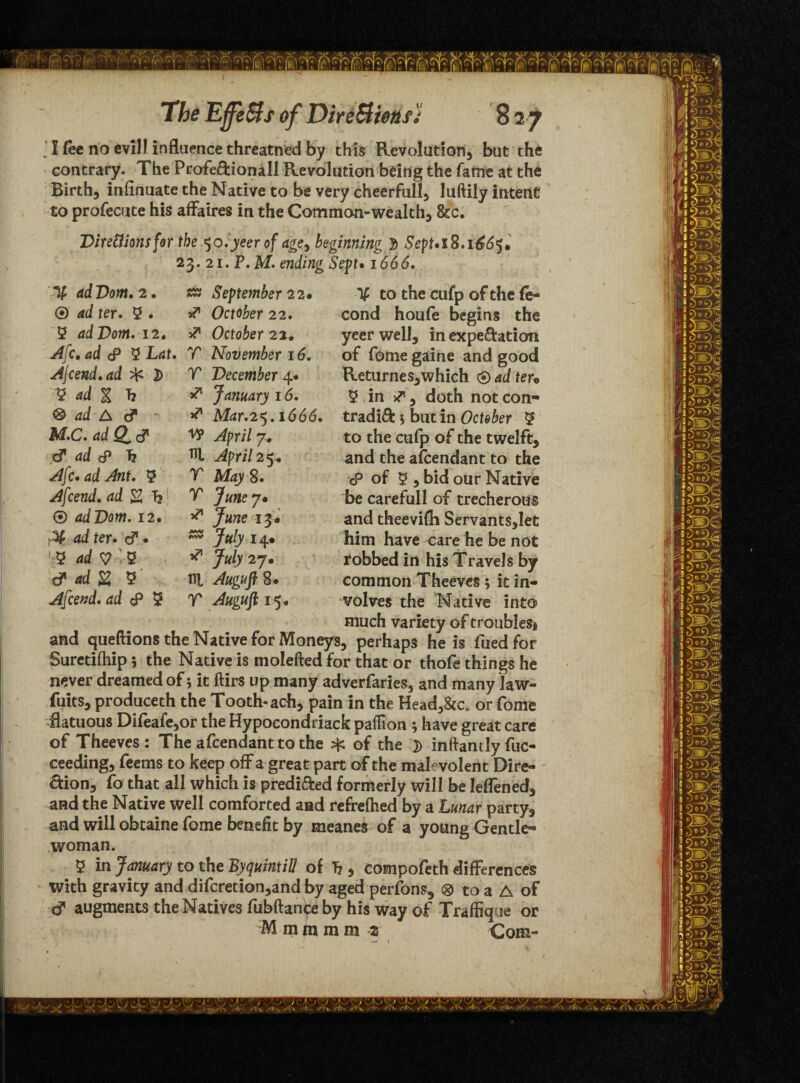 The Effects of Directions. 827
I ſee no evill influence threatned by this Revolution, but the
contrary. The Profectionall Revolution being the ſame at the
Birth, inſinuate the Native to be very cheerfull, luſtily intent
to proſecute his affaires in the Common-wealth, &c.
Directions for the 50. yeer of age, beginning ☽ Sept. 18. 1665.
23. 21. P. M. ending Sept. 1666.
♃ ad Dom. 2. ♒ September 22.
☉ ad ter. ☿. ♐ October 22.
☿ ad Dom. 12. ♐ October 22.
Aſc. ad ☍ ☿ Lat. ♈ November 16.
Aſcend. ad ⚹ ☽ ♈ December 4.
☿ ad ♄ ♐ January 16.
⊗ ad △ ♂ ♐ Mar. 25. 1666.
M.C. ad Q. ♂ ♑ April 7.
♂ ad ☍ ♄ ♏ April 25.
Aſc. ad Ant. ☿ ♈ May 8.
Aſcend. ad ♄ ♈ June 7.
☉ ad Dom. 12. ♐ June 13.
♃ ad ter. ♂. ♒ July 14.
☿ ad ☿ ♐ July 27.
♂ ad ☿ ♏ Auguſt 8.
Aſcend. ad ☍ ☿ ♈ Auguſt 15.
♃ to the cuſp of the ſe-
cond houſe begins the
yeer well, in expectation
of ſome gaine and good
Returnes, which ☉ ad ter.
☿ in ♐, doth not con-
tradict; but in October ☿
to the cuſp of the twelft,
and the aſcendant to the
☍ of ☿, bid our Native
be carefull of trecherous
and theeviſh Servants, let
him have care he be not
robbed in his Travels by
common Theeves; it in-
volves the Native into
much variety of troubles,
and queſtions the Native for Moneys, perhaps he is ſued for
Suretiſhip; the Native is moleſted for that or thoſe things he
never dreamed of; it ſtirs up many adverſaries, and many law-
ſuits, produceth the Tooth-ach, pain in the Head, &c. or ſome
flatuous Diſeaſe, or the Hypocondriack paſſion; have great care
of Theeves: The aſcendant to the ⚹ of the ☽ inſtantly ſuc-
ceeding, ſeems to keep off a great part of the malevolent Dire-
ction, ſo that all which is predicted formerly will be leſſened,
and the Native well comforted and refreſhed by a Lunar party,
and will obtaine ſome benefit by meanes of a young Gentle-
woman.
☿ in January to the Byquintill of ♄, compoſeth differences
with gravity and diſcretion, and by aged perſons, ⊗ to a △ of
♂ augments the Natives ſubſtance by his way of Traffique or
M m m m m 2 Com-